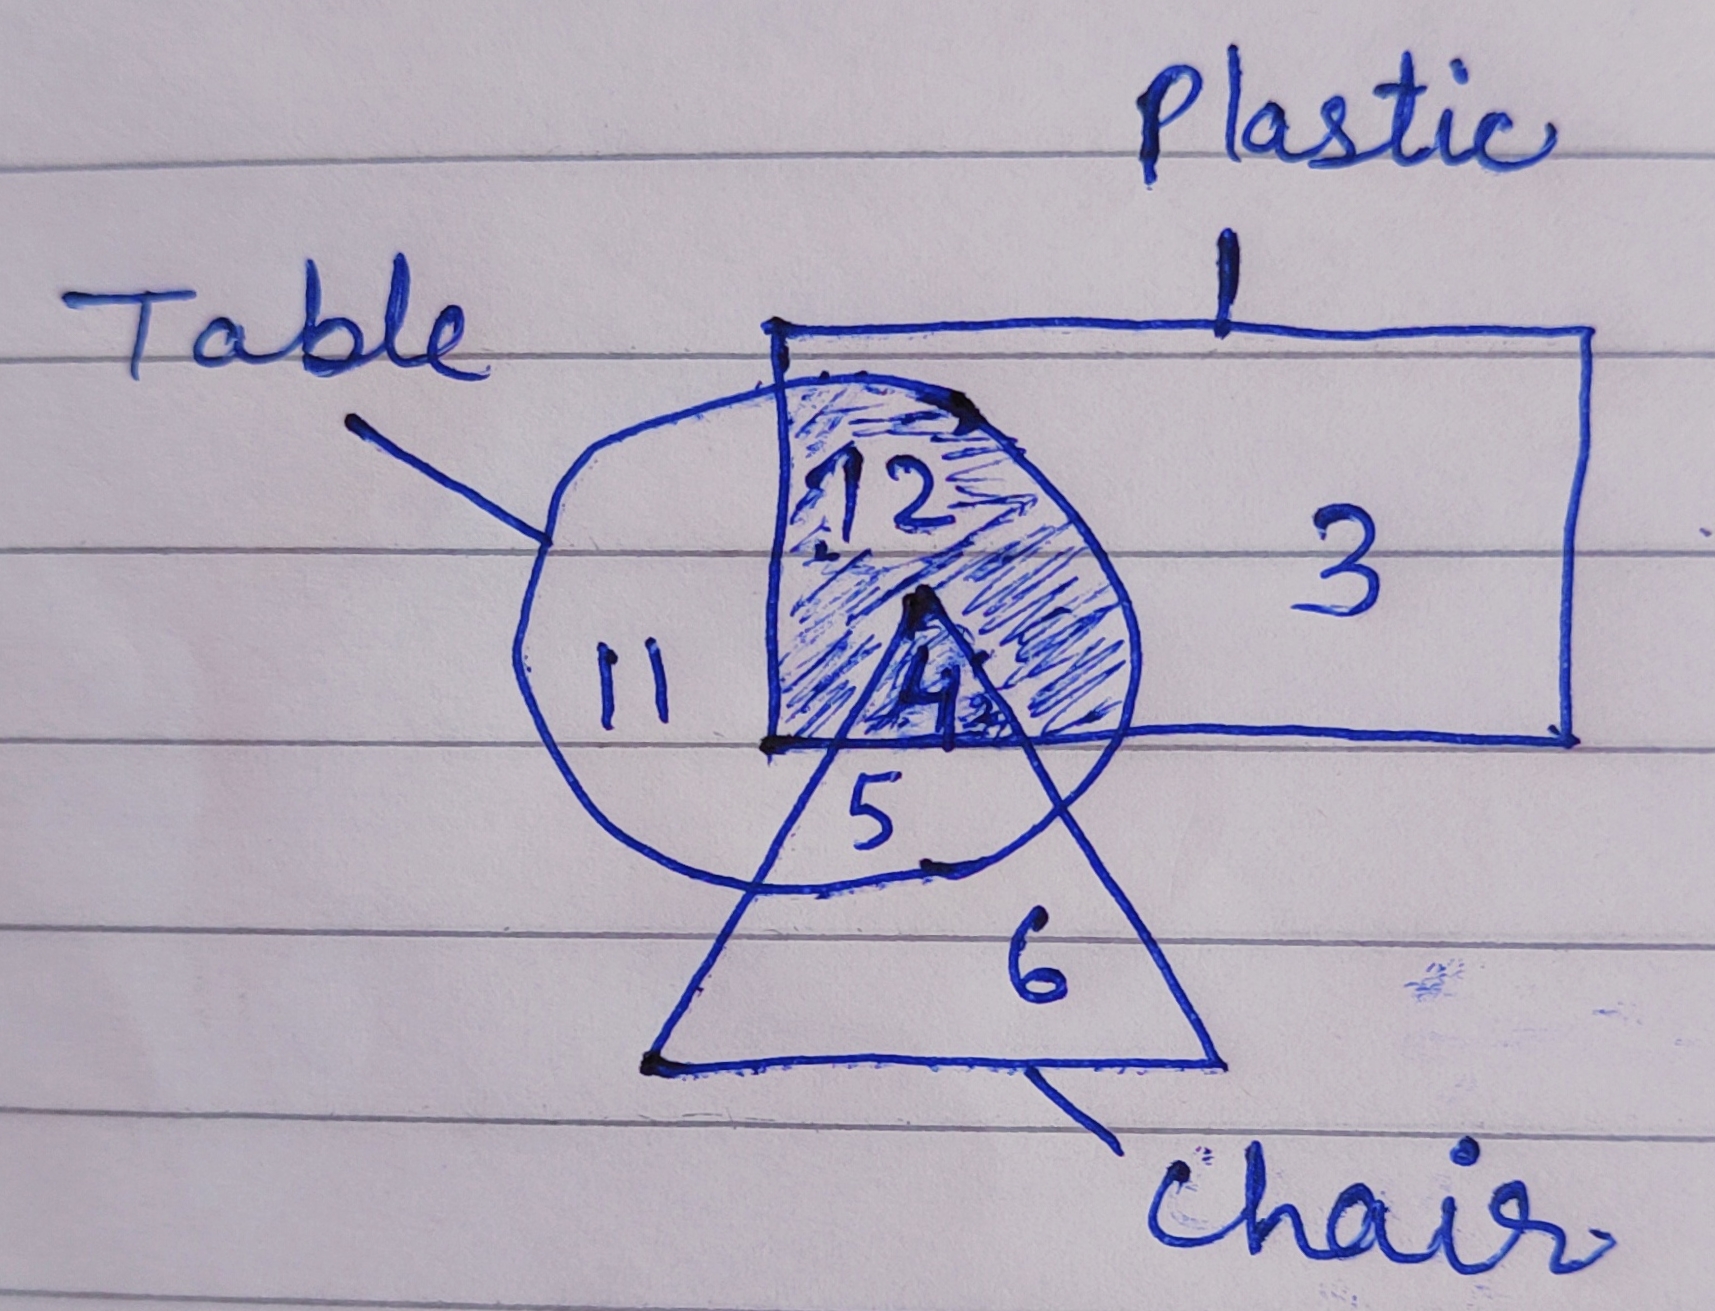 Plastic
Table
12
3
11
4
5
6
Chair